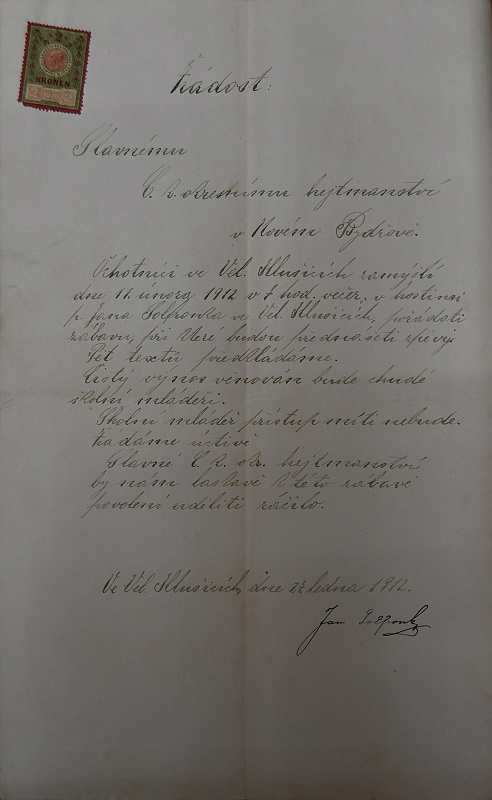 2
KRONEN
Žádost:
Slavnému
C. k. okresnímu hejtmanství
v Novém Bydžově.
Ochotníci ve Vel. Hlušicích zamýšlí
dne 11. února 1912 v 7 hod. večer, v hostinci
p. Jana ve Vel. Hlušicích, pořádati
zábavu, při které budou přednášeti zpěvy.
Pět textů předkládáme.
Čistý výnos věnován bude chudé
školní mládeži.
Školní mládež přístup míti nebude.
Žádáme uctivě
Slavné C. k. okr. hejtmanství
by nám laskavě k této zábavě
povolení uděliti ráčilo.
Ve Vel. Hlušicích, dne ledna 1912.
Jan